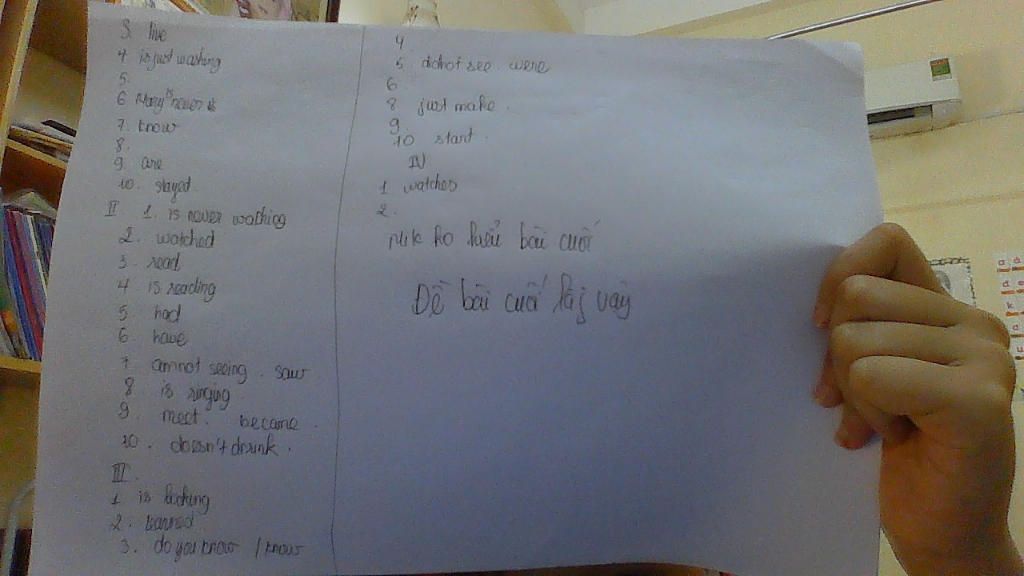 3. live
4 is just washing
5.
6 Mary is never is
7. know
8.
9. are
10. stayed.
II 1. is never washing
2. watched
3. read
4 is reading
5 had
6 have
7 cannot seeing. saw
8. is singing
9. meet. became.
10. doesn't drink.
III
1 is looking
2. learned
3. do you know / know
4.
5 did not see were
6
8 just make.
9
10 start.
IV
1 watches
2.
Mik ko hiểu bài cuối
Đề bài cuối là j vậy